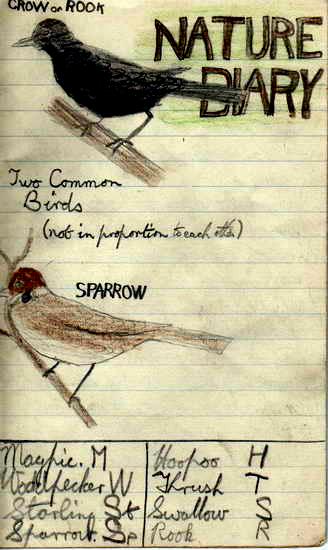 CROW or ROOK
NATURE
DIARY
Two Common
Birds
(not in proportion to each other)
SPARROW
Magpie. M
Woodpecker W
Starling St
Sparrow. Sp
Hoopoo H
Thrush T
Swallow S
Rook R